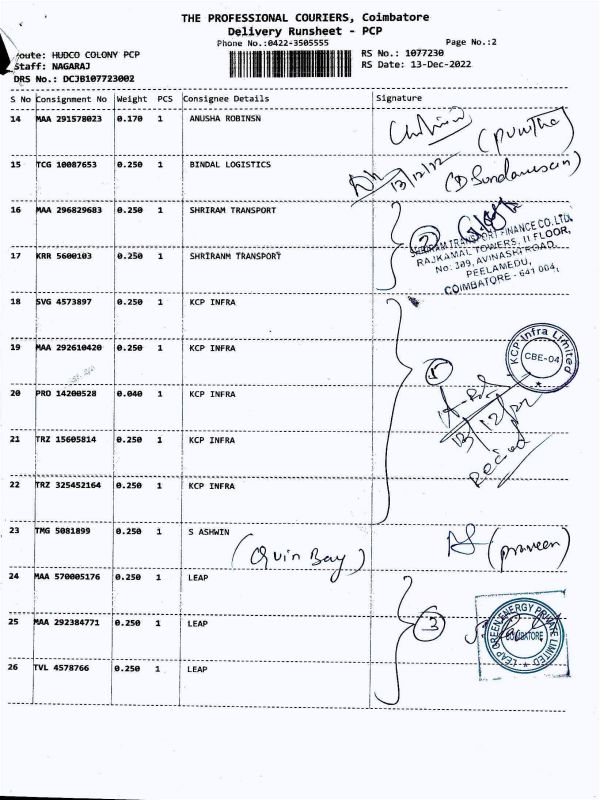 THE PROFESSIONAL COURIERS, Coimbatore
Delivery Runsheet - PCP
Phone No.:0422-3505555 Page No.:2
oute: HUDCO COLONY PCP RS No.: 1077230
Staff: NAGARAJ RS Date: 13-Dec-2022
DRS No.: DCJB107723002
S No Consignment No Weight PCS Consignee Details Signature
14 MAA 291578023 0.170 1 ANUSHA ROBINSN
15 TCG 10087653 0.250 1 BINDAL LOGISTICS
13/12/22
16 MAA 296829683 0.250 1 SHRIRAM TRANSPORT
2
SHRIRAM TRANSPORT FINANCE CO. LTD.
RAJKAMAL TOWERS, II FLOOR,
No: 109, AVINASHI ROAD,
PEELAMEDU,
COIMBATORE - 641 004.
17 KRR 5600103 0.250 1 SHRIRANM TRANSPORT
18 SVG 4573897 0.250 1 KCP INFRA
19 MAA 292610420 0.250 1 KCP INFRA
5
KCP Infra Limited
CBE-04
20 PRO 14200528 0.040 1 KCP INFRA
13/12/22
21 TRZ 15605814 0.250 1 KCP INFRA
22 TRZ 325452164 0.250 1 KCP INFRA
23 TMG 5081899 0.250 1 S ASHWIN
(Quin Bay) (praveen)
24 MAA 570005176 0.250 1 LEAP
25 MAA 292384771 0.250 1 LEAP
3
LEAP GREEN ENERGY PRIVATE LIMITED
COIMBATORE
26 TVL 4578766 0.250 1 LEAP